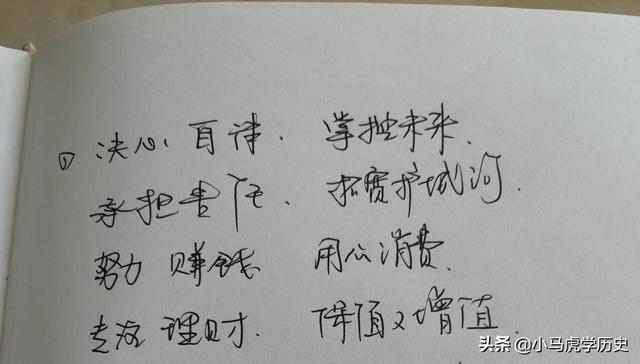 ① 决心自律. 掌控未来.
承担责任. 拓宽护城河.
努力赚钱 用心消费.
理财. 保值又增值
头条 @小马虎学历史